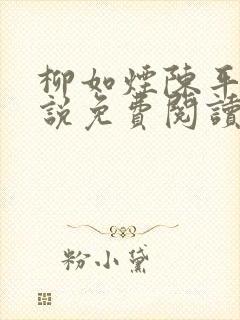 柳如煙陳平
說免費閱讀
粉小黛